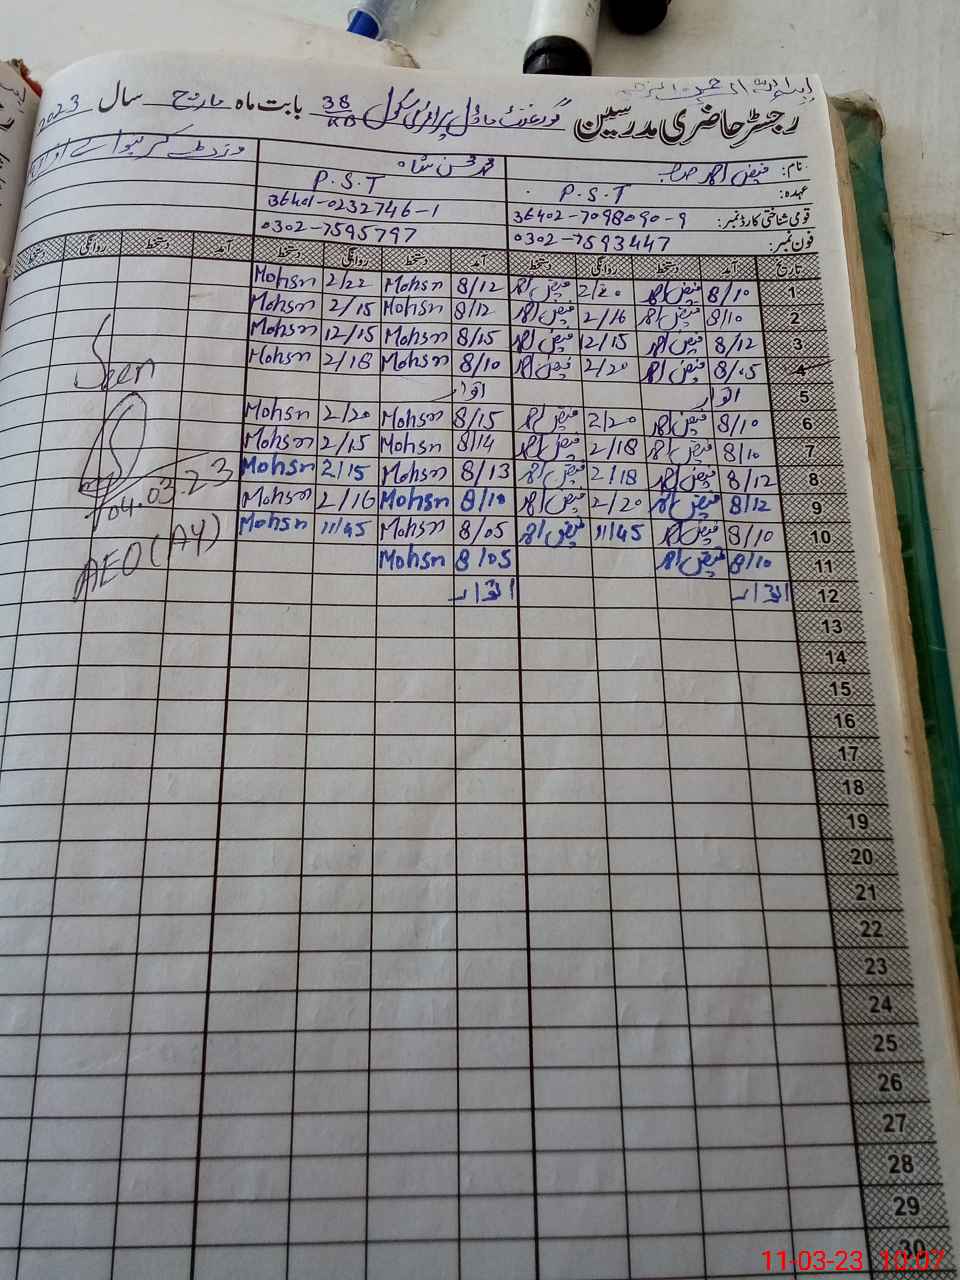 رجسٹر حاضری مدرسین گورنمنٹ ماڈل پرائمری سکول 38/KB بابت ماہ مارچ سال 2023
نام: فیض احمد صاحب محمد محسن شاہ
عہدہ: P.S.T P.S.T
قومی شناختی کارڈ نمبر: 36402-7098090-9 36401-0232746-1
فون نمبر: 0302-7593447 0302-7595797
تاریخ آمد دستخط روانگی دستخط آمد دستخط روانگی دستخط آمد دستخط روانگی دستخط
1 8/10 فیض احمد 2/20 فیض احمد 8/12 Mohsn 2/22 Mohsn
2 8/10 فیض احمد 2/16 فیض احمد 8/12 Mohsn 2/15 Mohsn
3 8/12 فیض احمد 12/15 فیض احمد 8/15 Mohsn 12/15 Mohsn
4 8/05 فیض احمد 2/20 فیض احمد 8/10 Mohsn 2/18 Mohsn
5 اتوار اتوار
6 8/10 فیض احمد 2/20 فیض احمد 8/15 Mohsn 2/20 Mohsn
7 8/10 فیض احمد 2/18 فیض احمد 8/14 Mohsn 2/15 Mohsn
8 8/12 فیض احمد 2/18 فیض احمد 8/13 Mohsn 2/15 Mohsn
9 8/12 فیض احمد 2/20 فیض احمد 8/10 Mohsn 2/16 Mohsn
10 8/10 فیض احمد 11/45 فیض احمد 8/05 Mohsn 11/45 Mohsn
11 8/10 فیض احمد 8/05 Mohsn
12 اتوار اتوار
Seen
04.03.23
AEO(A4)
13
14
15
16
17
18
19
20
21
22
23
24
25
26
27
28
29
30
11-03-23 10:07